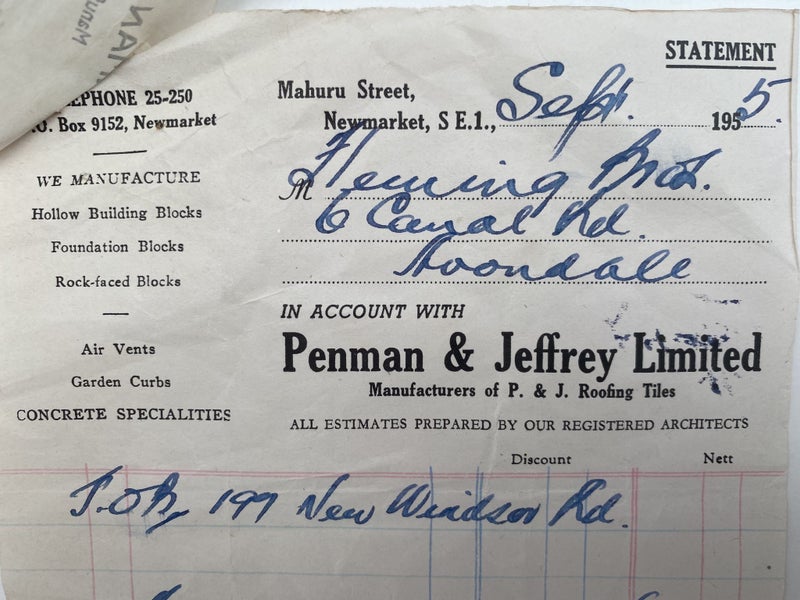 STATEMENT
EPHONE 25-250
O. Box 9152, Newmarket
Mahuru Street,
Newmarket, S E.1., Sept. 1955.
M Fleming Bros.
6 Canal Rd.
Avondale
WE MANUFACTURE
Hollow Building Blocks
Foundation Blocks
Rock-faced Blocks
Air Vents
Garden Curbs
CONCRETE SPECIALITIES
IN ACCOUNT WITH
Penman & Jeffrey Limited
Manufacturers of P. & J. Roofing Tiles
ALL ESTIMATES PREPARED BY OUR REGISTERED ARCHITECTS
Discount Nett
199 New Windsor Rd.